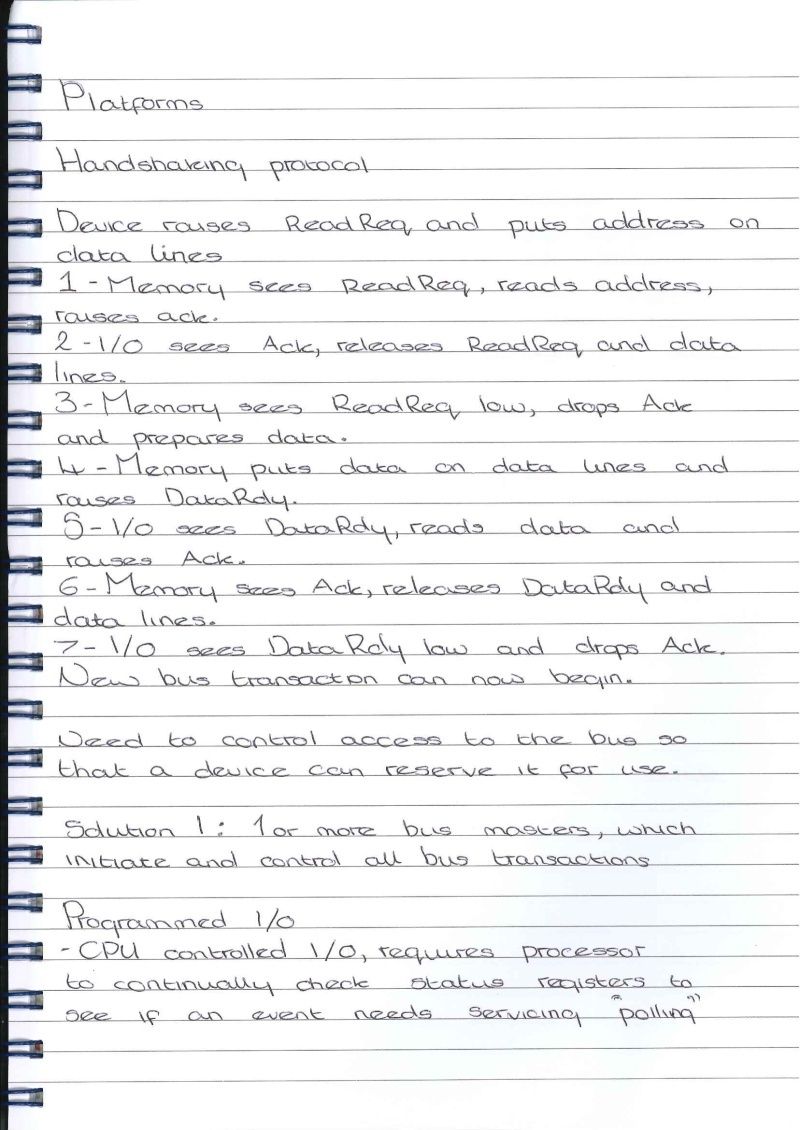 Platforms
Handshaking protocol
Device raises ReadReq and puts address on
data lines
1 - Memory sees ReadReq, reads address,
raises ack.
2 - I/O sees Ack, releases ReadReq and data
lines.
3 - Memory sees ReadReq low, drops Ack
and prepares data.
4 - Memory puts data on data lines and
raises DataRdy.
5 - I/O sees DataRdy, reads data and
raises Ack.
6 - Memory sees Ack, releases DataRdy and
data lines.
7 - I/O sees DataRdy low and drops Ack.
New bus transaction can now begin.
Need to control access to the bus so
that a device can reserve it for use.
Solution 1: 1 or more bus masters, which
initiate and control all bus transactions
Programmed I/O
- CPU controlled I/O, requires processor
to continually check status registers to
see if an event needs servicing "polling"